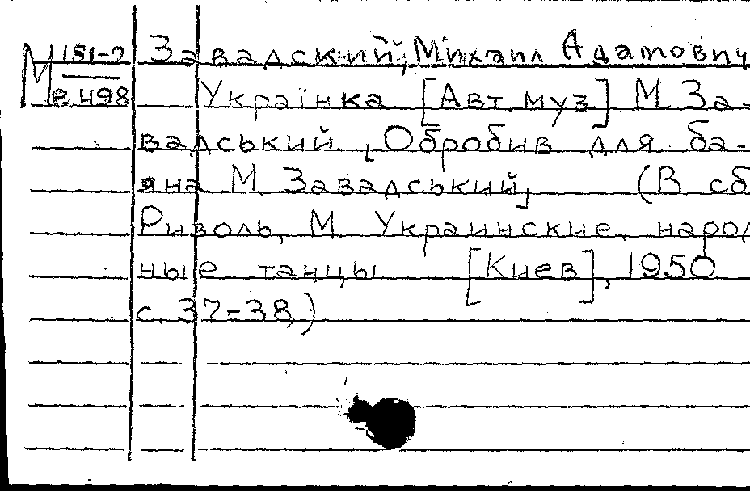 М 151-7 Завадский, Михаил Адамович
в 498 Українка [Авт. муз] М. За-
вадський, Обробив для ба-
яна М. Завадський, (В сб
Риволь, М. Украинские народ
ные танцы [Киев], 1950
с. 37-38)